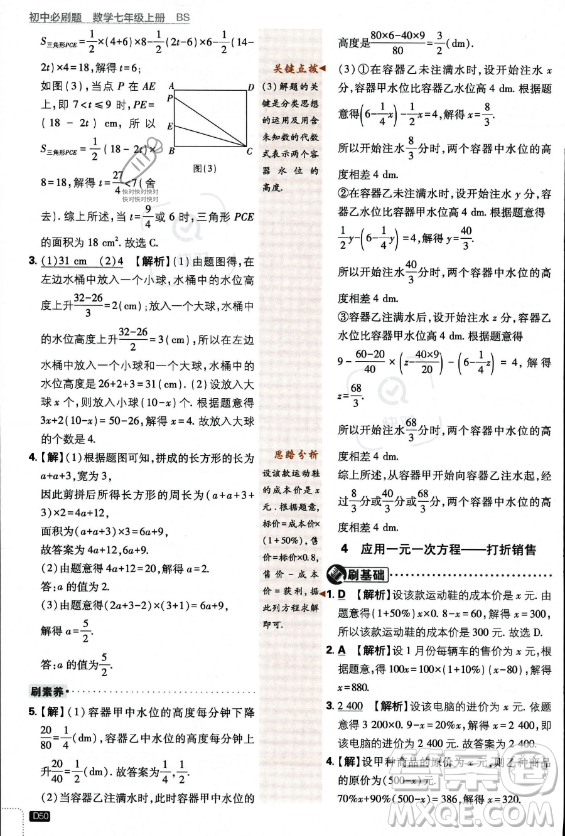 初中必刷题 数学七年级上册 BS
S三角形PCE=1/2×(4+6)×8-1/2(2t-6)×6-1/2(14-
2t)×4=18,解得t=6;
如图(3),当点P在AE
上,即7<t≤9时,PE=
(18-2t),所以
S三角形PCE=1/2(18-2t)×
8=18,解得t=27/4<7(舍
去).综上所述,当t=9/4或6时,三角形PCE
的面积为18 cm².故选C.
A
D
P
E
B
C
图(3)
3.(1)31 cm (2)4 【解析】(1)由题图得,在
左边水桶中放入一个小球,水桶中的水位高
度上升(32-26)/3=2(cm);放入一个大球,水桶中
的水位高度上升(32-26)/2=3(cm),所以在左边
水桶中放入一个小球和一个大球,水桶中的
水位高度是26+2+3=31(cm).(2)设放入大
球x个,则放入小球(10-x)个.根据题意得
3x+2(10-x)=50-26,解得x=4.故放入大球
的个数是4.
4.【解】(1)根据题图可知,拼成的长方形的长为
a+a+3,宽为3,
因此剪拼后所得长方形的周长为(a+a+3+
3)×2=4a+12,
面积为(a+a+3)×3=6a+9.
故答案为4a+12,6a+9.
(2)由题意得4a+12=20,解得a=2.
答:a的值为2.
(3)由题意得(2a+3-2)×(3+1)=6a+9,
解得a=5/2.
答:a的值为5/2.
刷素养
5.【解】(1)容器甲中水位的高度每分钟下降
20/80=1/4(dm),容器乙中水位的高度每分钟上
升20/40=1/2(dm).故答案为1/4,1/2.
(2)当容器乙注满水时,此时容器甲中水位的
D50
关键点拨
(3)解题的关
键是分类思想
的运用及用含
未知数的代数
式表示两个容
器水位的
高度.
思路分析
设该款运动鞋
的成本价是x
元.根据题意,
标价=成本价×
(1+50%),售
价=标价×0.8,
售价-成本
价=获利,据
此列方程求解
即可.
高度是6-1/4×(40×9)/20=1.5(dm).
(3)①在容器乙未注满水时,设开始注水x分,容
器甲中水位比容器乙中水位高4 dm.根据题
意得(6-1/4x)-1/2x=4,解得x=8/3.
所以开始注水8/3分时,两个容器中水位的高
度相差4 dm.
②在容器乙未注满水时,设开始注水y分,容器
乙中水位比容器甲中水位高4 dm.根据题意得
1/2y-(6-1/4y)=4,解得y=40/3.
所以开始注水40/3分时,两个容器中水位的高
度相差4 dm.
③容器乙注满水后,设开始注水z分,容器乙
水位比容器甲水位高4 dm.根据题意得
9-(60-20)/40×(z-(40×9)/20)-(6-1/4z)=4,解得
z=68/3.
所以开始注水68/3分时,两个容器中水位的高
度相差4 dm.
综上所述,从容器甲开始向容器乙注水起,经
过8/3分或40/3分或68/3分,两个容器中水位的高度
相差4 dm.
4 应用一元一次方程——打折销售
刷基础
1.D 【解析】设该款运动鞋的成本价是x元.由
题意得(1+50%)x×0.8-x=60,解得x=300,
所以该款运动鞋的成本价是300元.故选D.
2.A 【解析】设1月份每辆车的售价为x元.根
据题意得100x=(x-80)×100×(1+10%),解得
x=880.
3.2 400 【解析】设该电脑的进价为x元.依题
意得3 200×0.9-x=20%x,解得x=2 400.
则该电脑的进价为2 400元.故答案为2 400.
4.【解】设甲种商品的原价为x元,则乙种商品
的原价为(500-x)元.根据题意得
70%x+90%(500-x)=386,解得x=320,